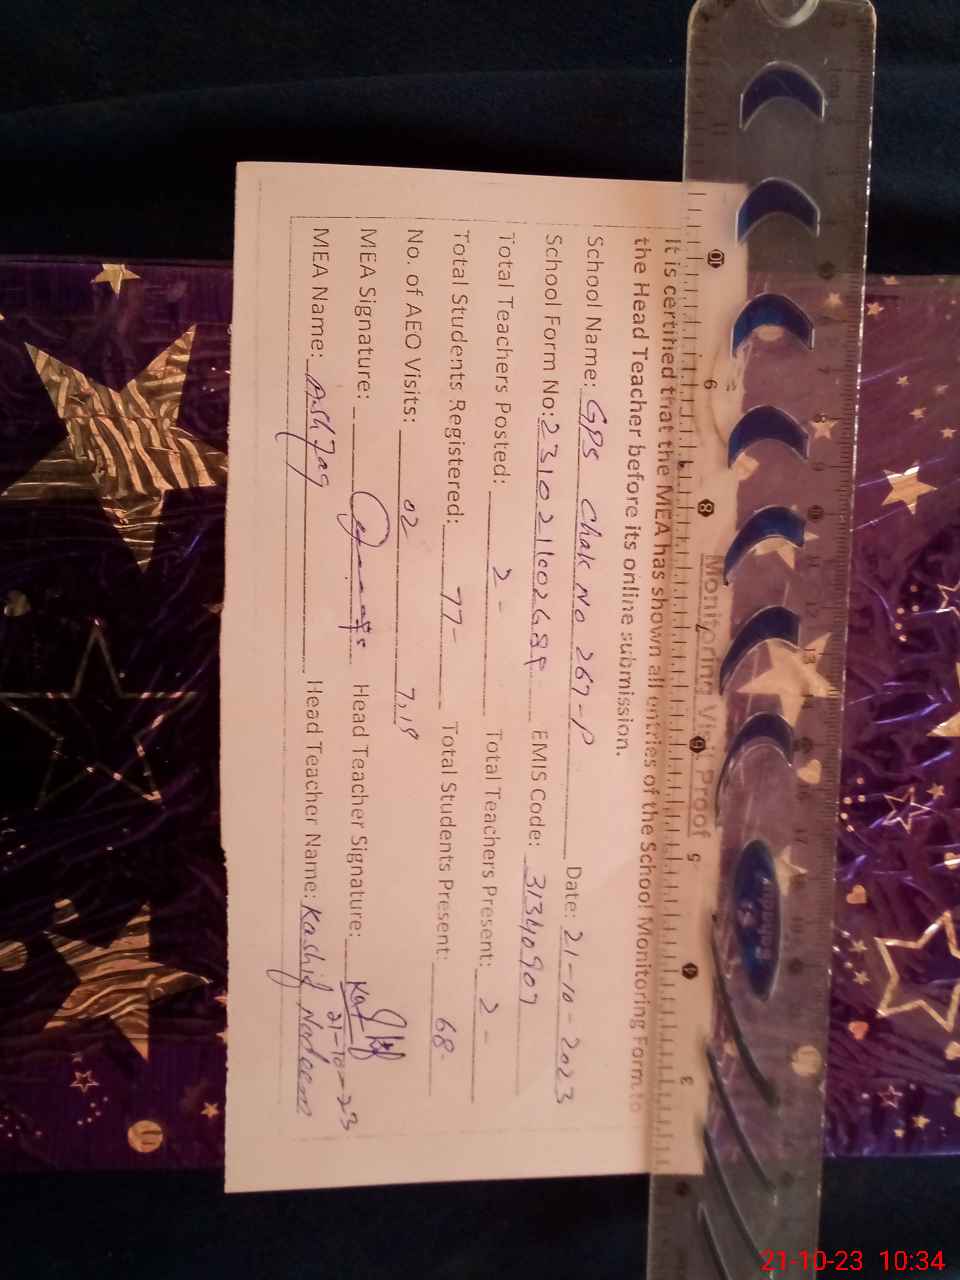 Monitoring Visit Proof
It is certified that the MEA has shown all entries of the School Monitoring Form to
the Head Teacher before its online submission.
School Name: GPS Chak No 267-P Date: 21-10-2023
School Form No: EMIS Code: 31340907
Total Teachers Posted: 2 - Total Teachers Present: 2 -
Total Students Registered: 77- Total Students Present: 68-
No. of AEO Visits: 02 7,19
MEA Signature: Head Teacher Signature:
21-10-23
MEA Name: Ashfaq Head Teacher Name: Kashif Nadeem
21-10-23 10:34